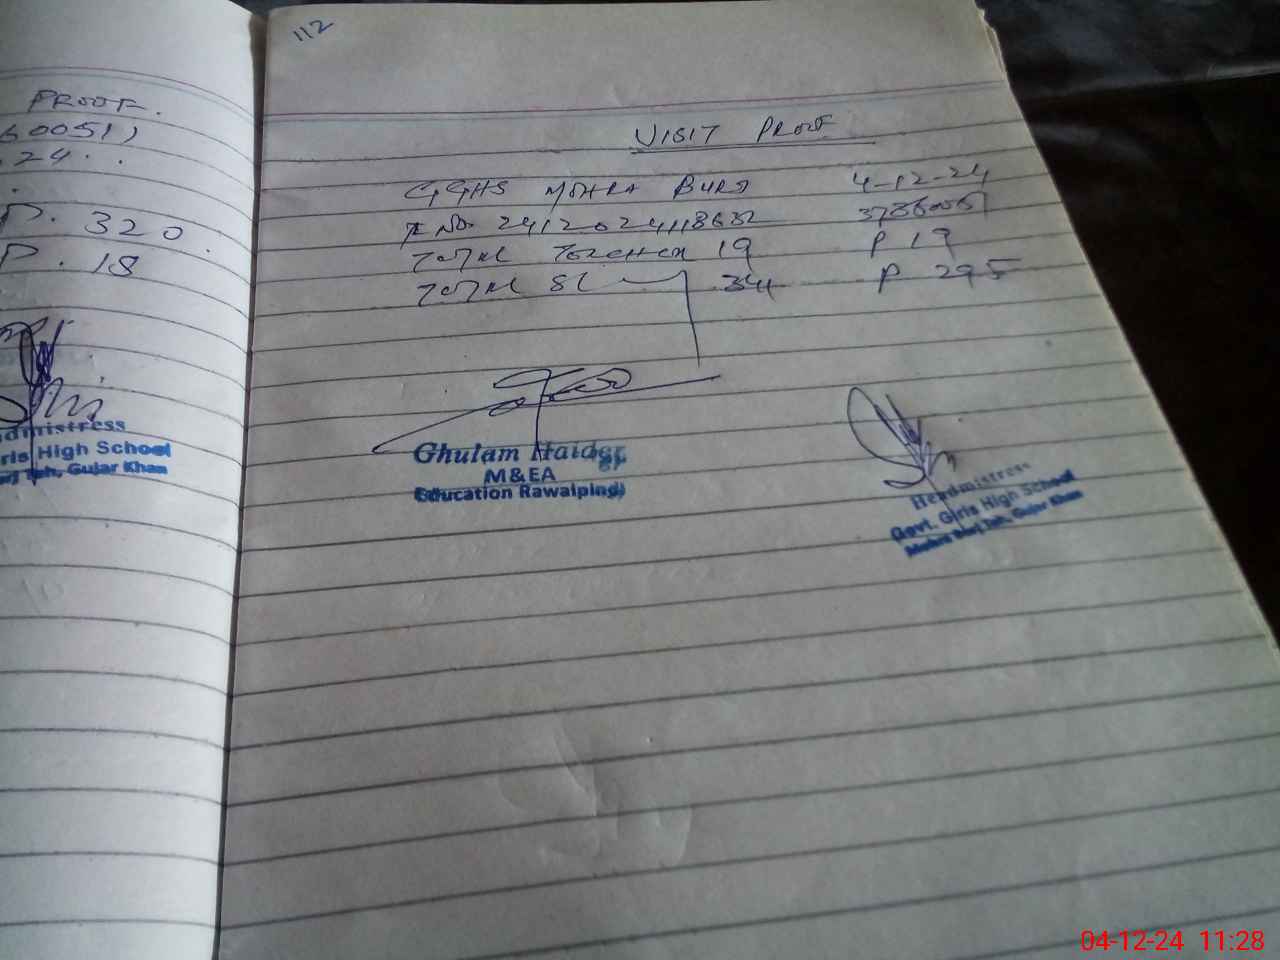 PROOF.
60051)
.24..
P. 320.
P. 18
Headmistress
Girls High School
Burj Teh, Gujar Khan
112
VISIT PROOF
GGHS MOHRA BURJ 4-12-24
2412024118632 37360051
TOTAL TEACHER 19 P 19
TOTAL St 341 P 295
Ghulam Haider
M&EA
Education Rawalpindi
Headmistress
Govt. Girls High School
Mohra Burj Teh, Gujar Khan
04-12-24 11:28